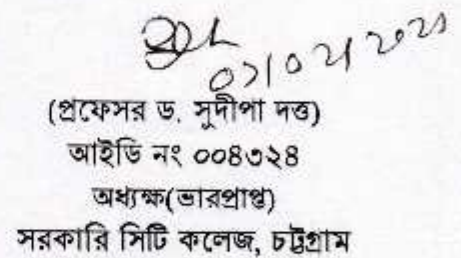 (প্রফেসর ড. সুদীপা দত্ত)
আইডি নং ০০৪৩২৪
অধ্যক্ষ(ভারপ্রাপ্ত)
সরকারি সিটি কলেজ, চট্টগ্রাম